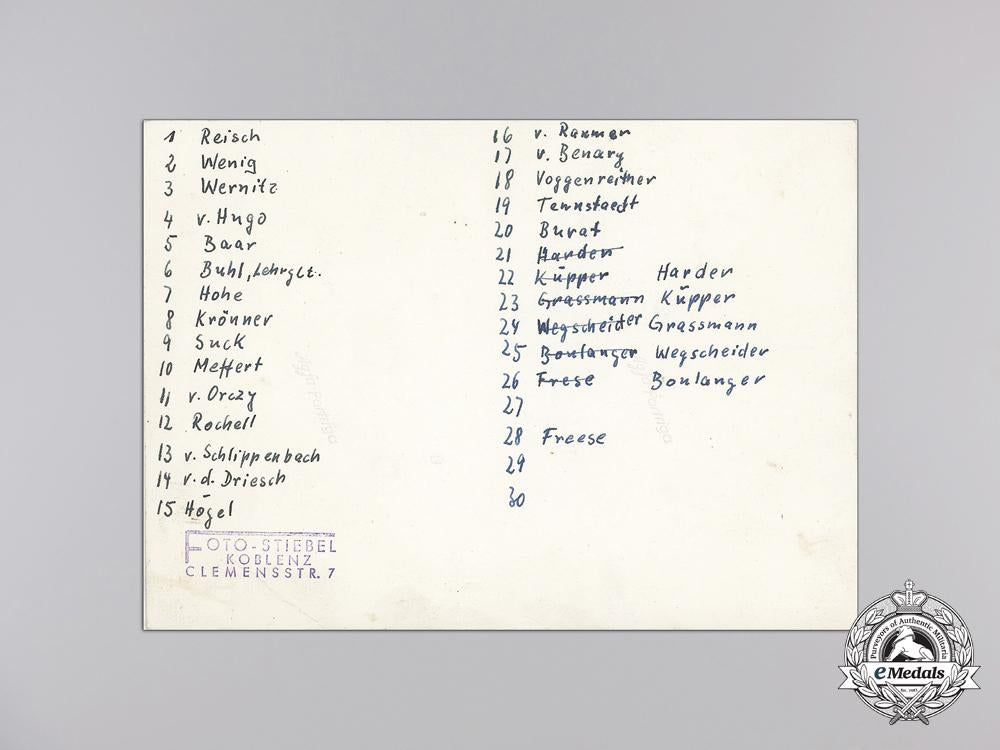 1 Reisch
2 Wenig
3 Wernitz
4 v. Hugo
5 Baar
6 Buhl, Lehrglt.
7 Hohe
8 Krönner
9 Suck
10 Meffert
11 v. Orczy
12 Rochell
13 v. Schlippenbach
14 v. d. Driesch
15 Högel
FOTO-STIEBEL
KOBLENZ
CLEMENSSTR. 7
16 v. Raumer
17 v. Benary
18 Voggenreither
19 Tennstaedt
20 Burat
21 Harder
22 Küpper Harder
23 Grassmann Küpper
24 Wegscheider Grassmann
25 Boulanger Wegscheider
26 Frese Boulanger
27
28 Freese
29
30
Agfa-Portriga
Portriga
Purveyors of Authentic Militaria
eMedals
Est. 1981